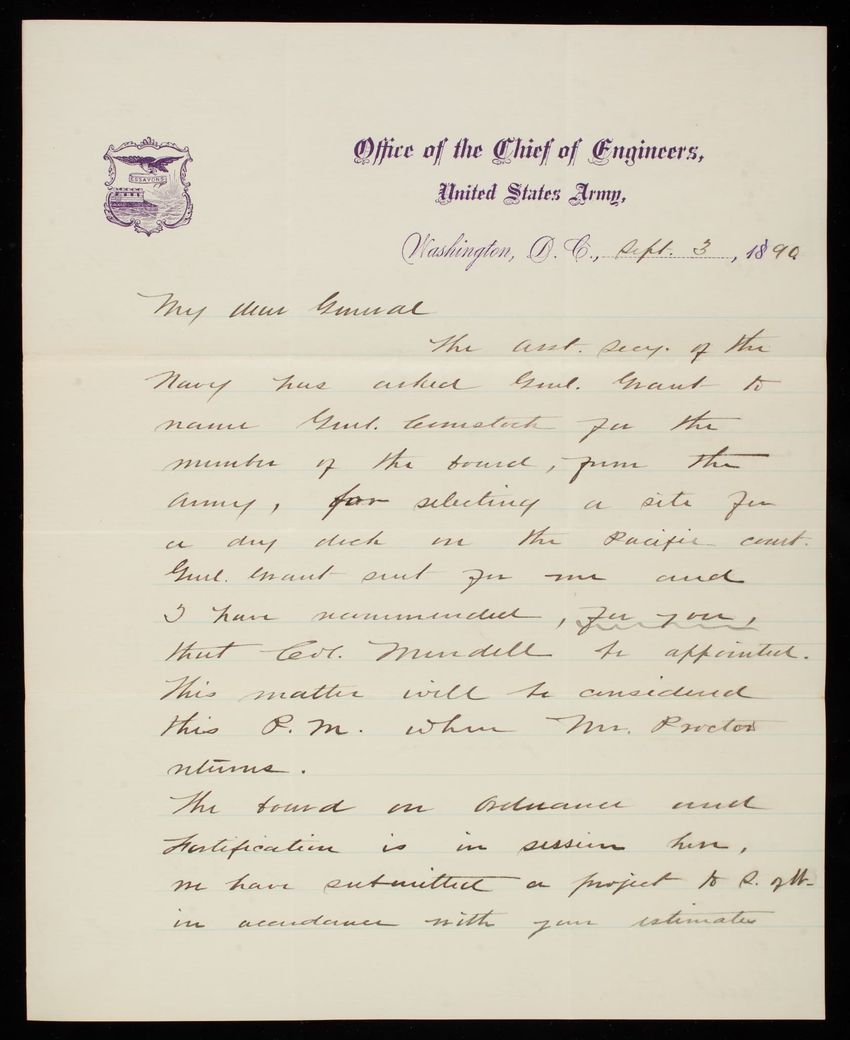 ESSAYONS
Office of the Chief of Engineers,
United States Army,
Washington, D. C., Sept. 3, 1890
My dear General
The Asst. Secy. of the
Navy has asked Genl. Grant to
name Genl. Comstock for the
member of the board, from the
Army, for selecting a site for
a dry dock on the Pacific coast.
Genl. Grant sent for me and
I have recommended, for you,
that Col. Mendell be appointed.
This matter will be considered
this P.M. when Mr. Proctor
returns.
The board on Ordnance and
Fortification is in session here,
we have submitted a project to S. of W.
in accordance with your estimates